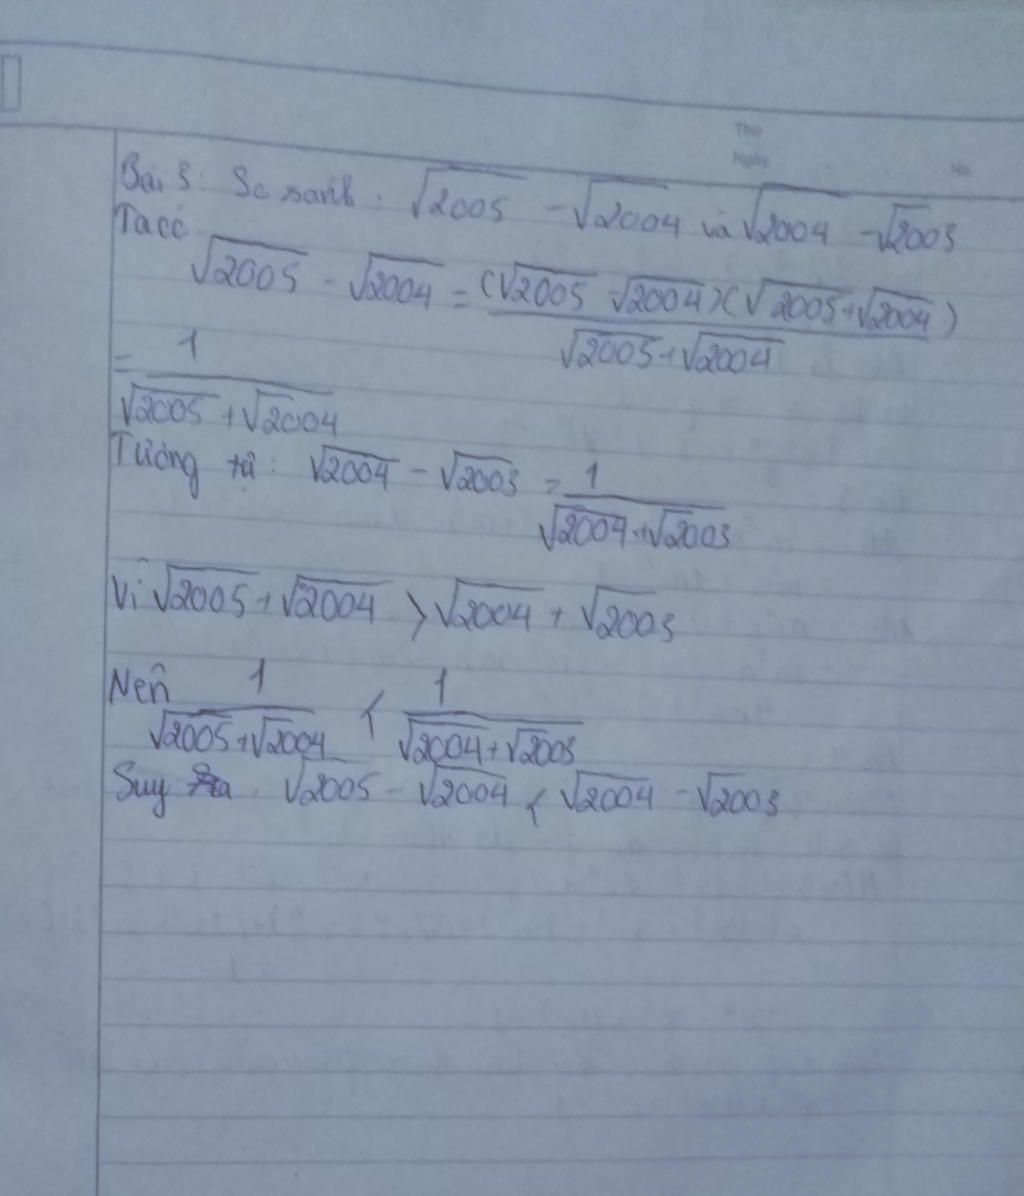 Thứ
Ngày No.
Bài 3: So sánh: √2005 - √2004 và √2004 - √2003
Ta có
√2005 - √2004 = (√2005 - √2004)(√2005 + √2004) / √2005 + √2004
= 1 / √2005 + √2004
Tương tự: √2004 - √2003 = 1 / √2004 + √2003
Vì √2005 + √2004 > √2004 + √2003
Nên 1 / √2005 + √2004 < 1 / √2004 + √2003
Suy ra √2005 - √2004 < √2004 - √2003